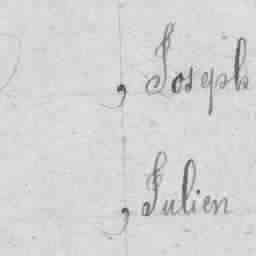 , Joseph
, Julien